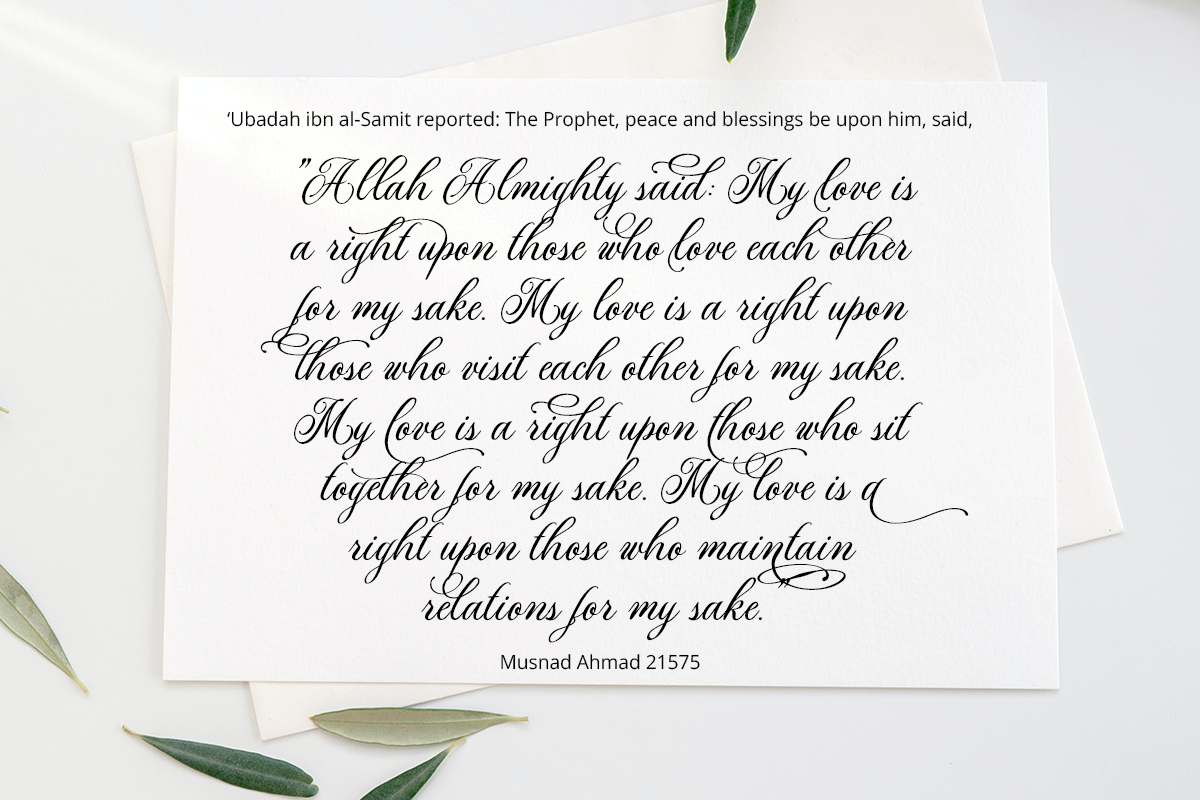 ‘Ubadah ibn al-Samit reported: The Prophet, peace and blessings be upon him, said,
"Allah Almighty said: My love is
a right upon those who love each other
for my sake. My love is a right upon
those who visit each other for my sake.
My love is a right upon those who sit
together for my sake. My love is a
right upon those who maintain
relations for my sake."
Musnad Ahmad 21575